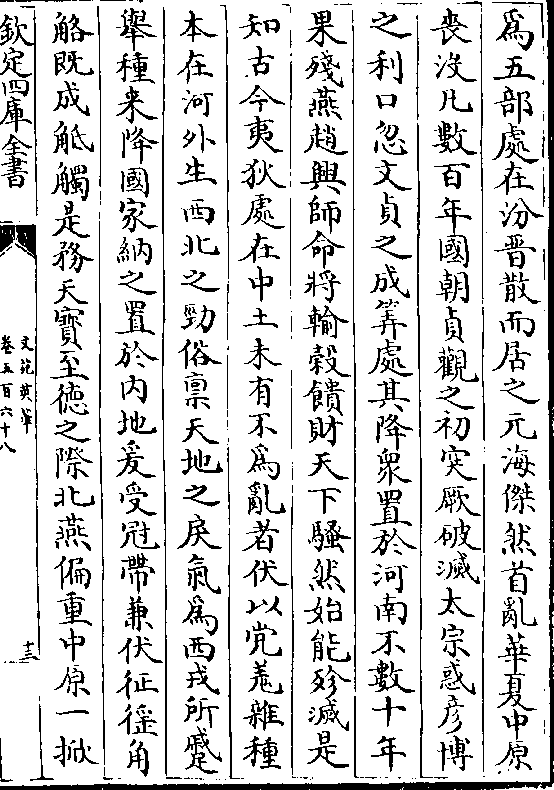 為五部處在汾晋散而居之元海傑然首亂華夏中原
喪没凡數百年國朝貞觀之初突厥破滅太宗惑彦博
之利口忽文貞之成筭處其降衆置於河南不數十年
果殘燕趙興師命將輸穀饋財天下騷然始能殄滅是
知古今夷狄處在中土未有不為亂者伏以党羌雜種
本在河外生西北之勁俗禀天地之戾氣為西戎所蹙
舉種来降國家納之置於内地爰受冠帶兼伏征徭角
觡既成觝觸是務天寳至德之際北燕偏重中原一掀
欽定四庫全書
文苑英華
卷五百六十八
十三